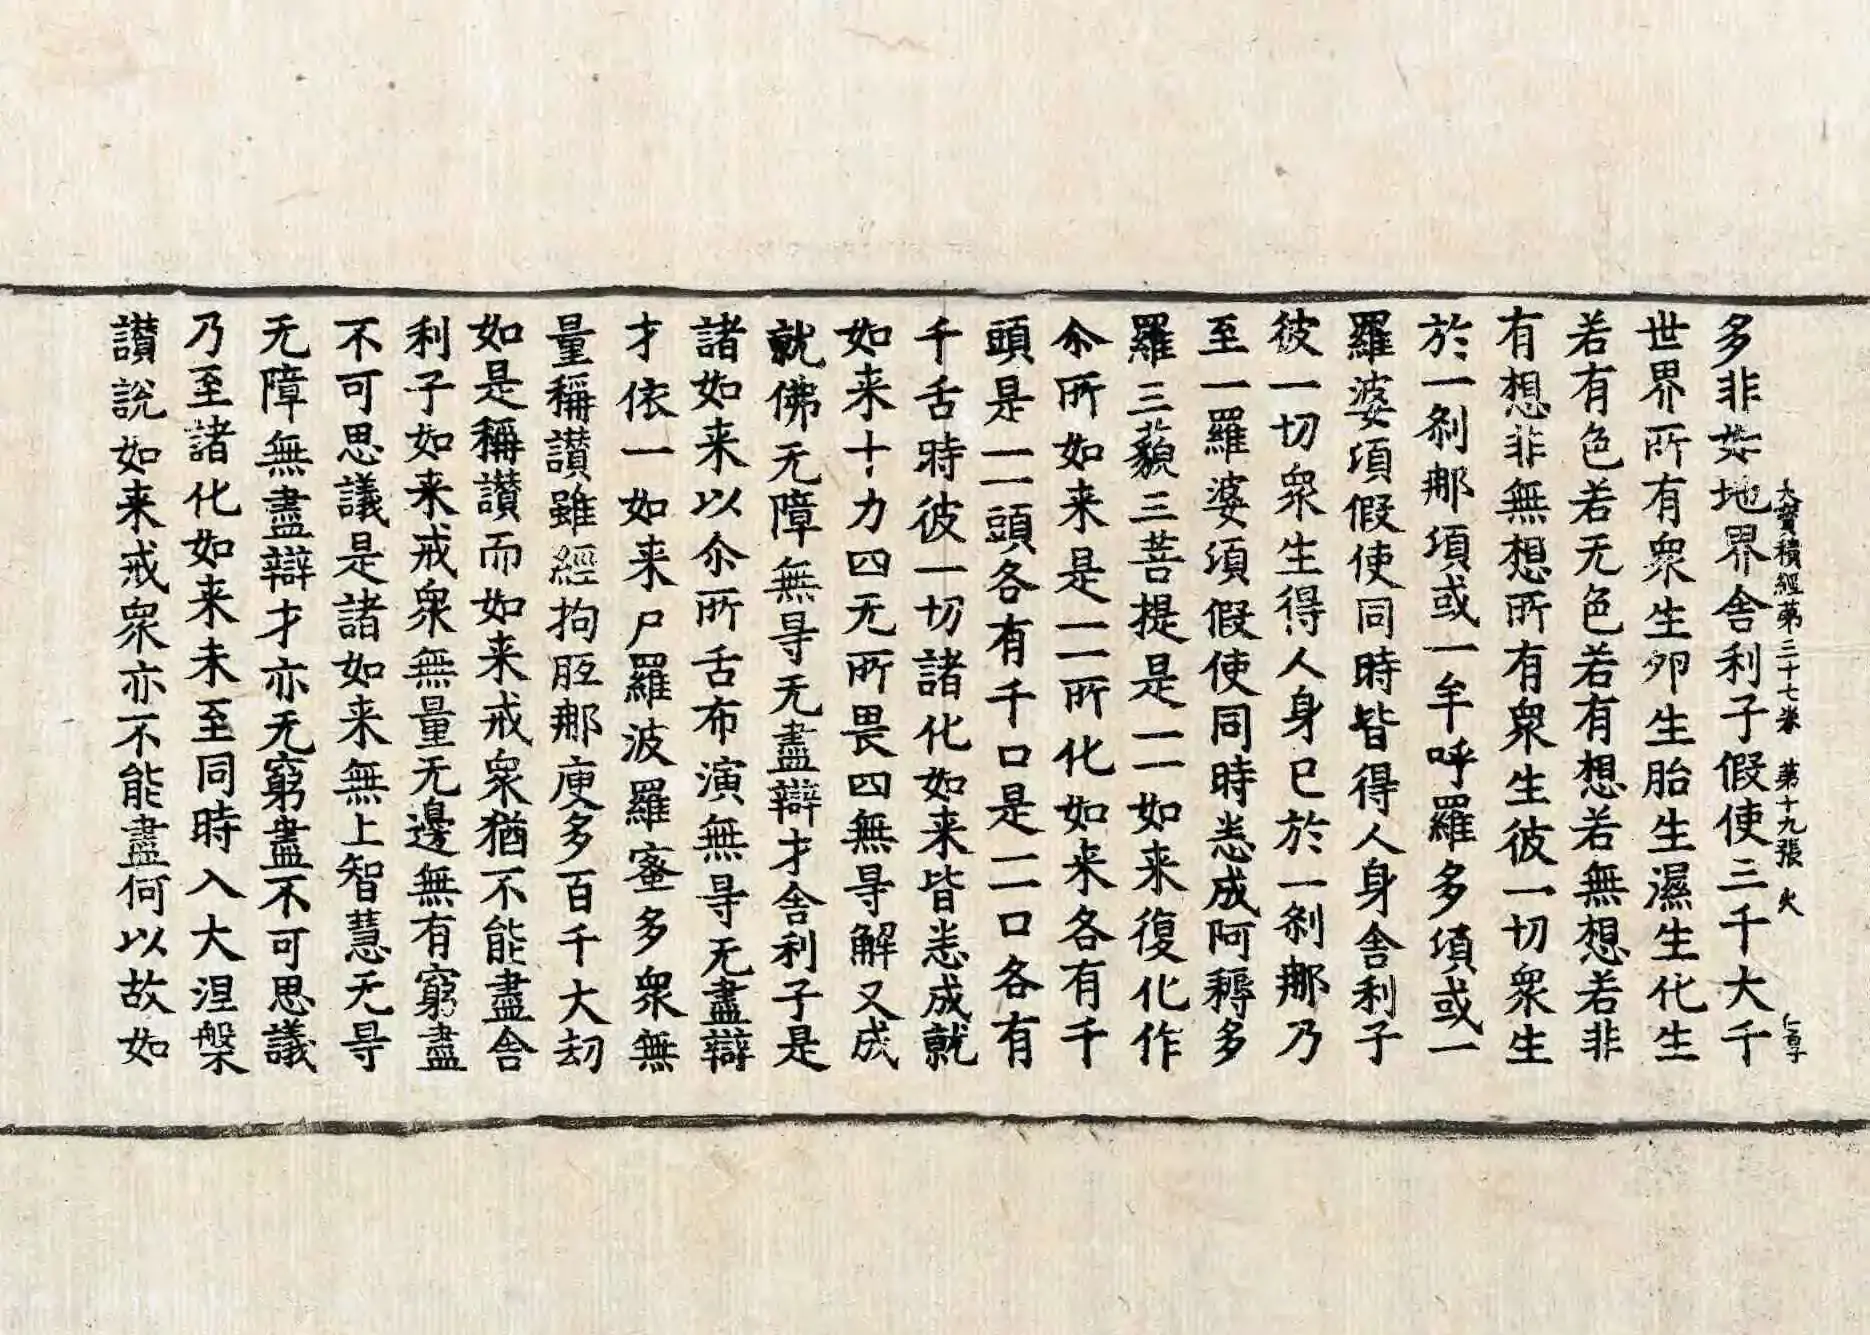 大寶積經第三十七卷 第十九張 火 仁壽子
多非如地界舍利子假使三千大千
世界所有衆生卵生胎生濕生化生
若有色若无色若有想若無想若非
有想非無想所有衆生彼一切衆生
於一刹那項或一牟呼羅多項或一
羅婆項假使同時皆得人身舍利子
彼一切衆生得人身已於一刹那乃
至一羅婆項假使同時悉成阿耨多
羅三藐三菩提是一一如来復化作
尒所如来是一一所化如来各有千
頭是一一頭各有千口是一一口各有
千舌時彼一切諸化如来皆悉成就
如来十力四无所畏四無㝵解又成
就佛无障無㝵无盡辯才舍利子是
諸如来以尒所舌布演無㝵无盡辯
才依一如来尸羅波羅蜜多衆無
量稱讃雖經拘胝那庾多百千大劫
如是稱讃而如来戒衆猶不能盡舍
利子如来戒衆無量无邊無有窮盡
不可思議是諸如来無上智慧无㝵
无障無盡辯才亦无窮盡不可思議
乃至諸化如来未至同時入大涅槃
讃説如来戒衆亦不能盡何以故如